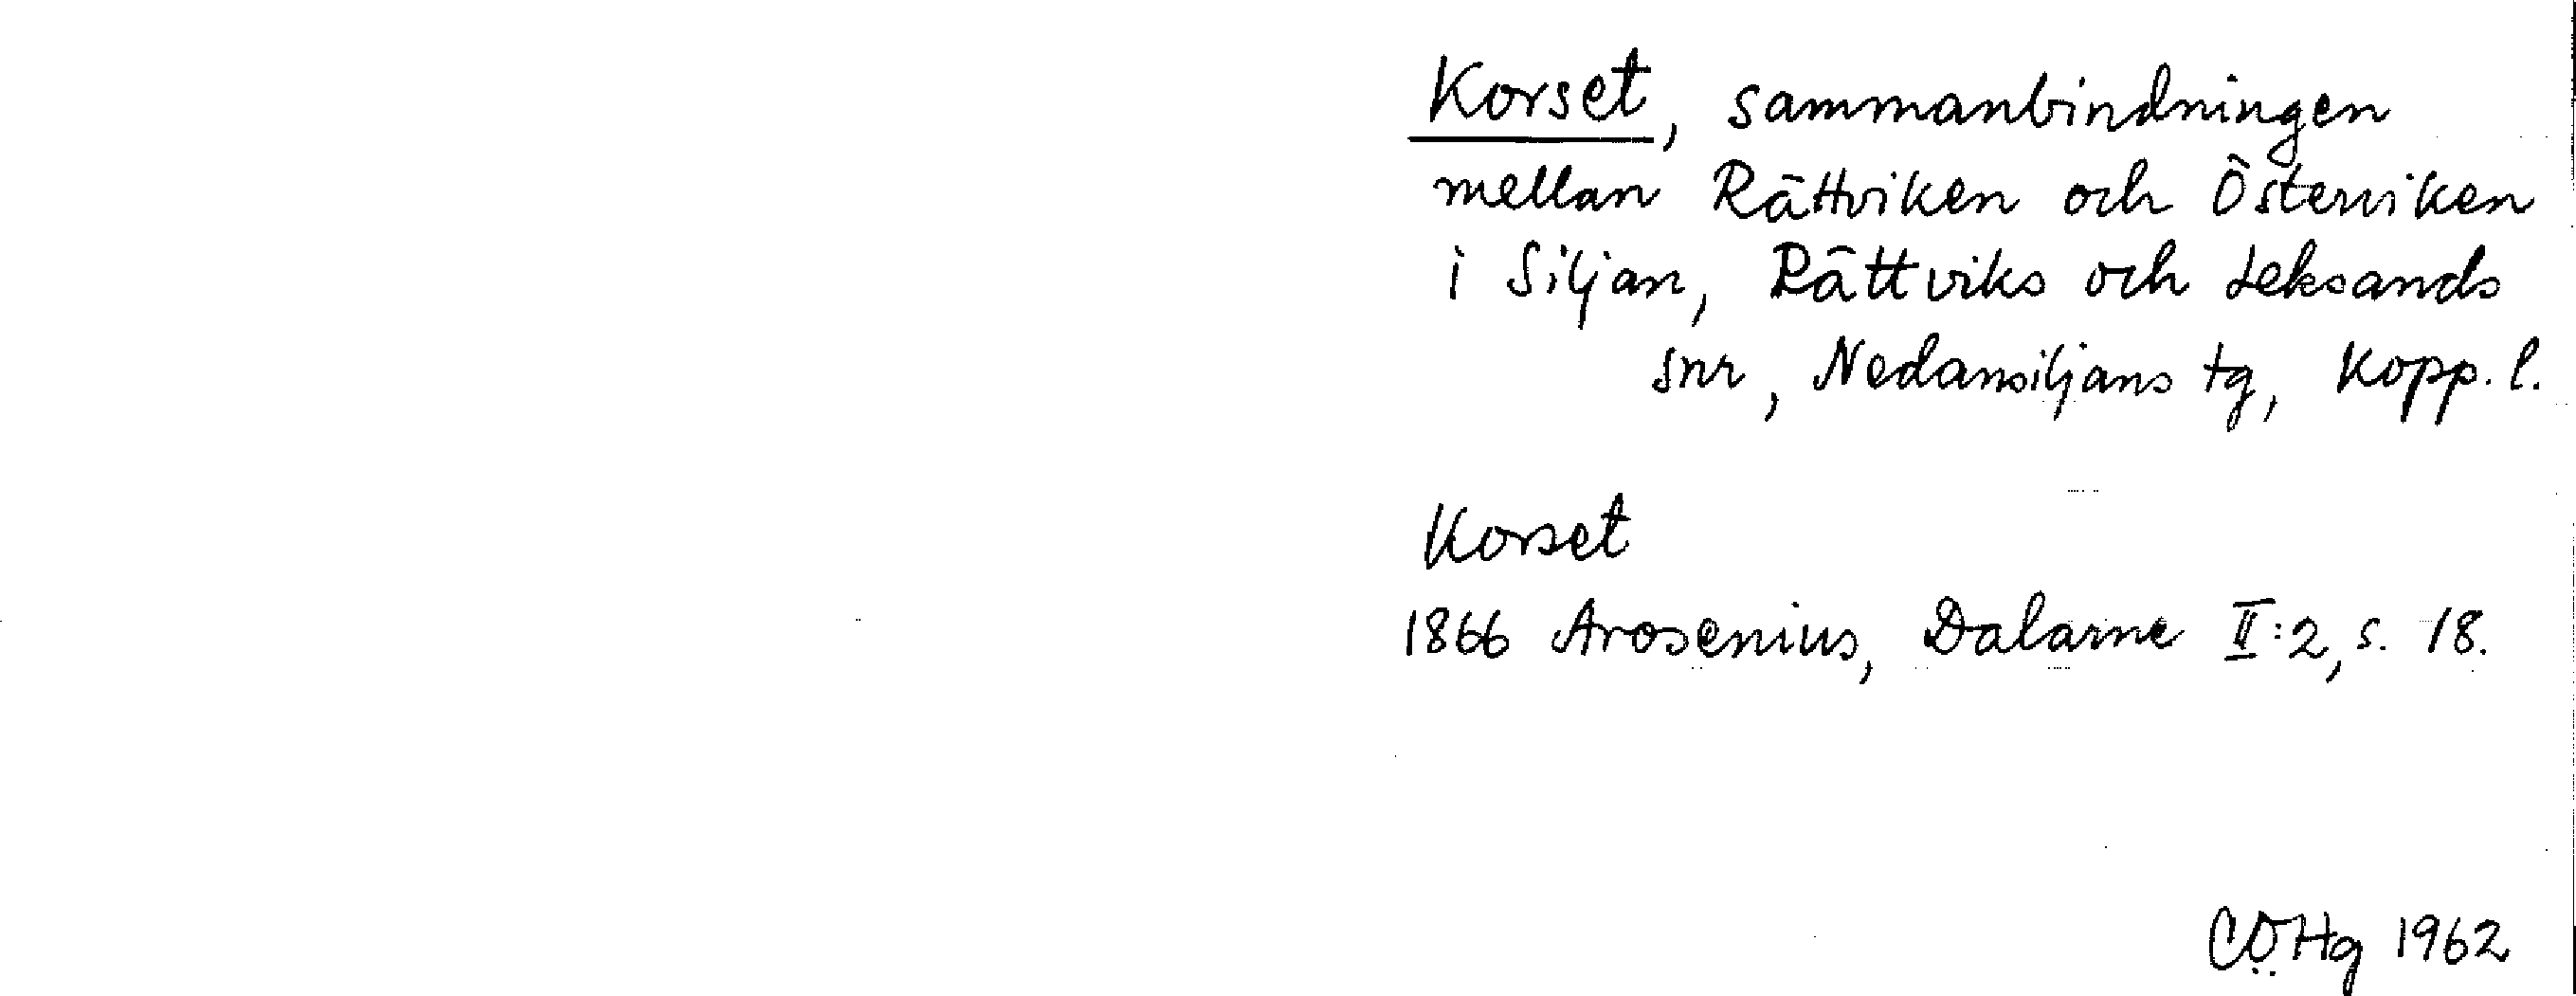 Korset, sammanbindningen
mellan Rättviken och Österviken
i Siljan, Rättviks och Leksands
snr, Nedansiljans tg, Kopp. l.
Korset
1866 Arosenius, Dalarne II:2, s. 18.
CÖHg 1962